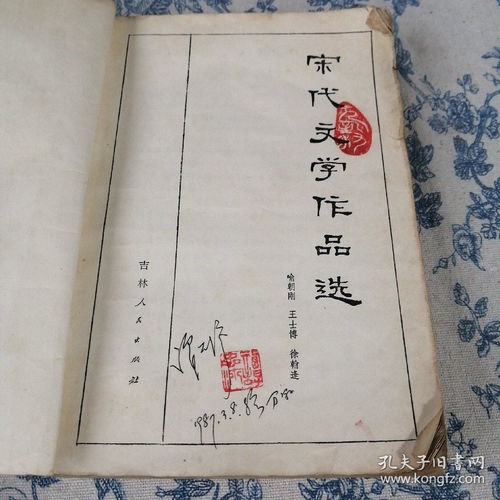 宋代文学作品选
喻朝刚 王士博 徐翰逢
吉林人民出版社
孔夫子旧书网
www.kongfz.com